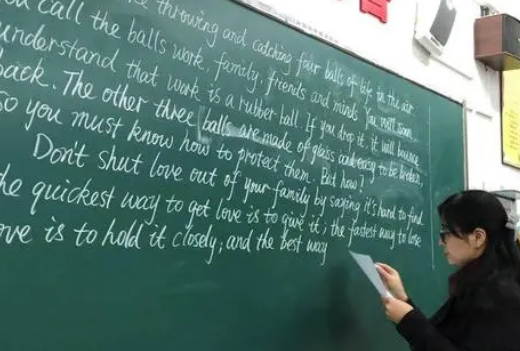 throwing and catching four balls of life in the air
call the balls work, family, friends and minds. You will soon
understand that work is a rubber ball. If you drop it, it will bounce
back. The other three balls are made of glass and easy to be broken,
so you must know how to protect them. But how?
Don't shut love out of your family by saying it's hard to find.
he quickest way to get love is to give it; the fastest way to lose
ove is to hold it closely; and the best way